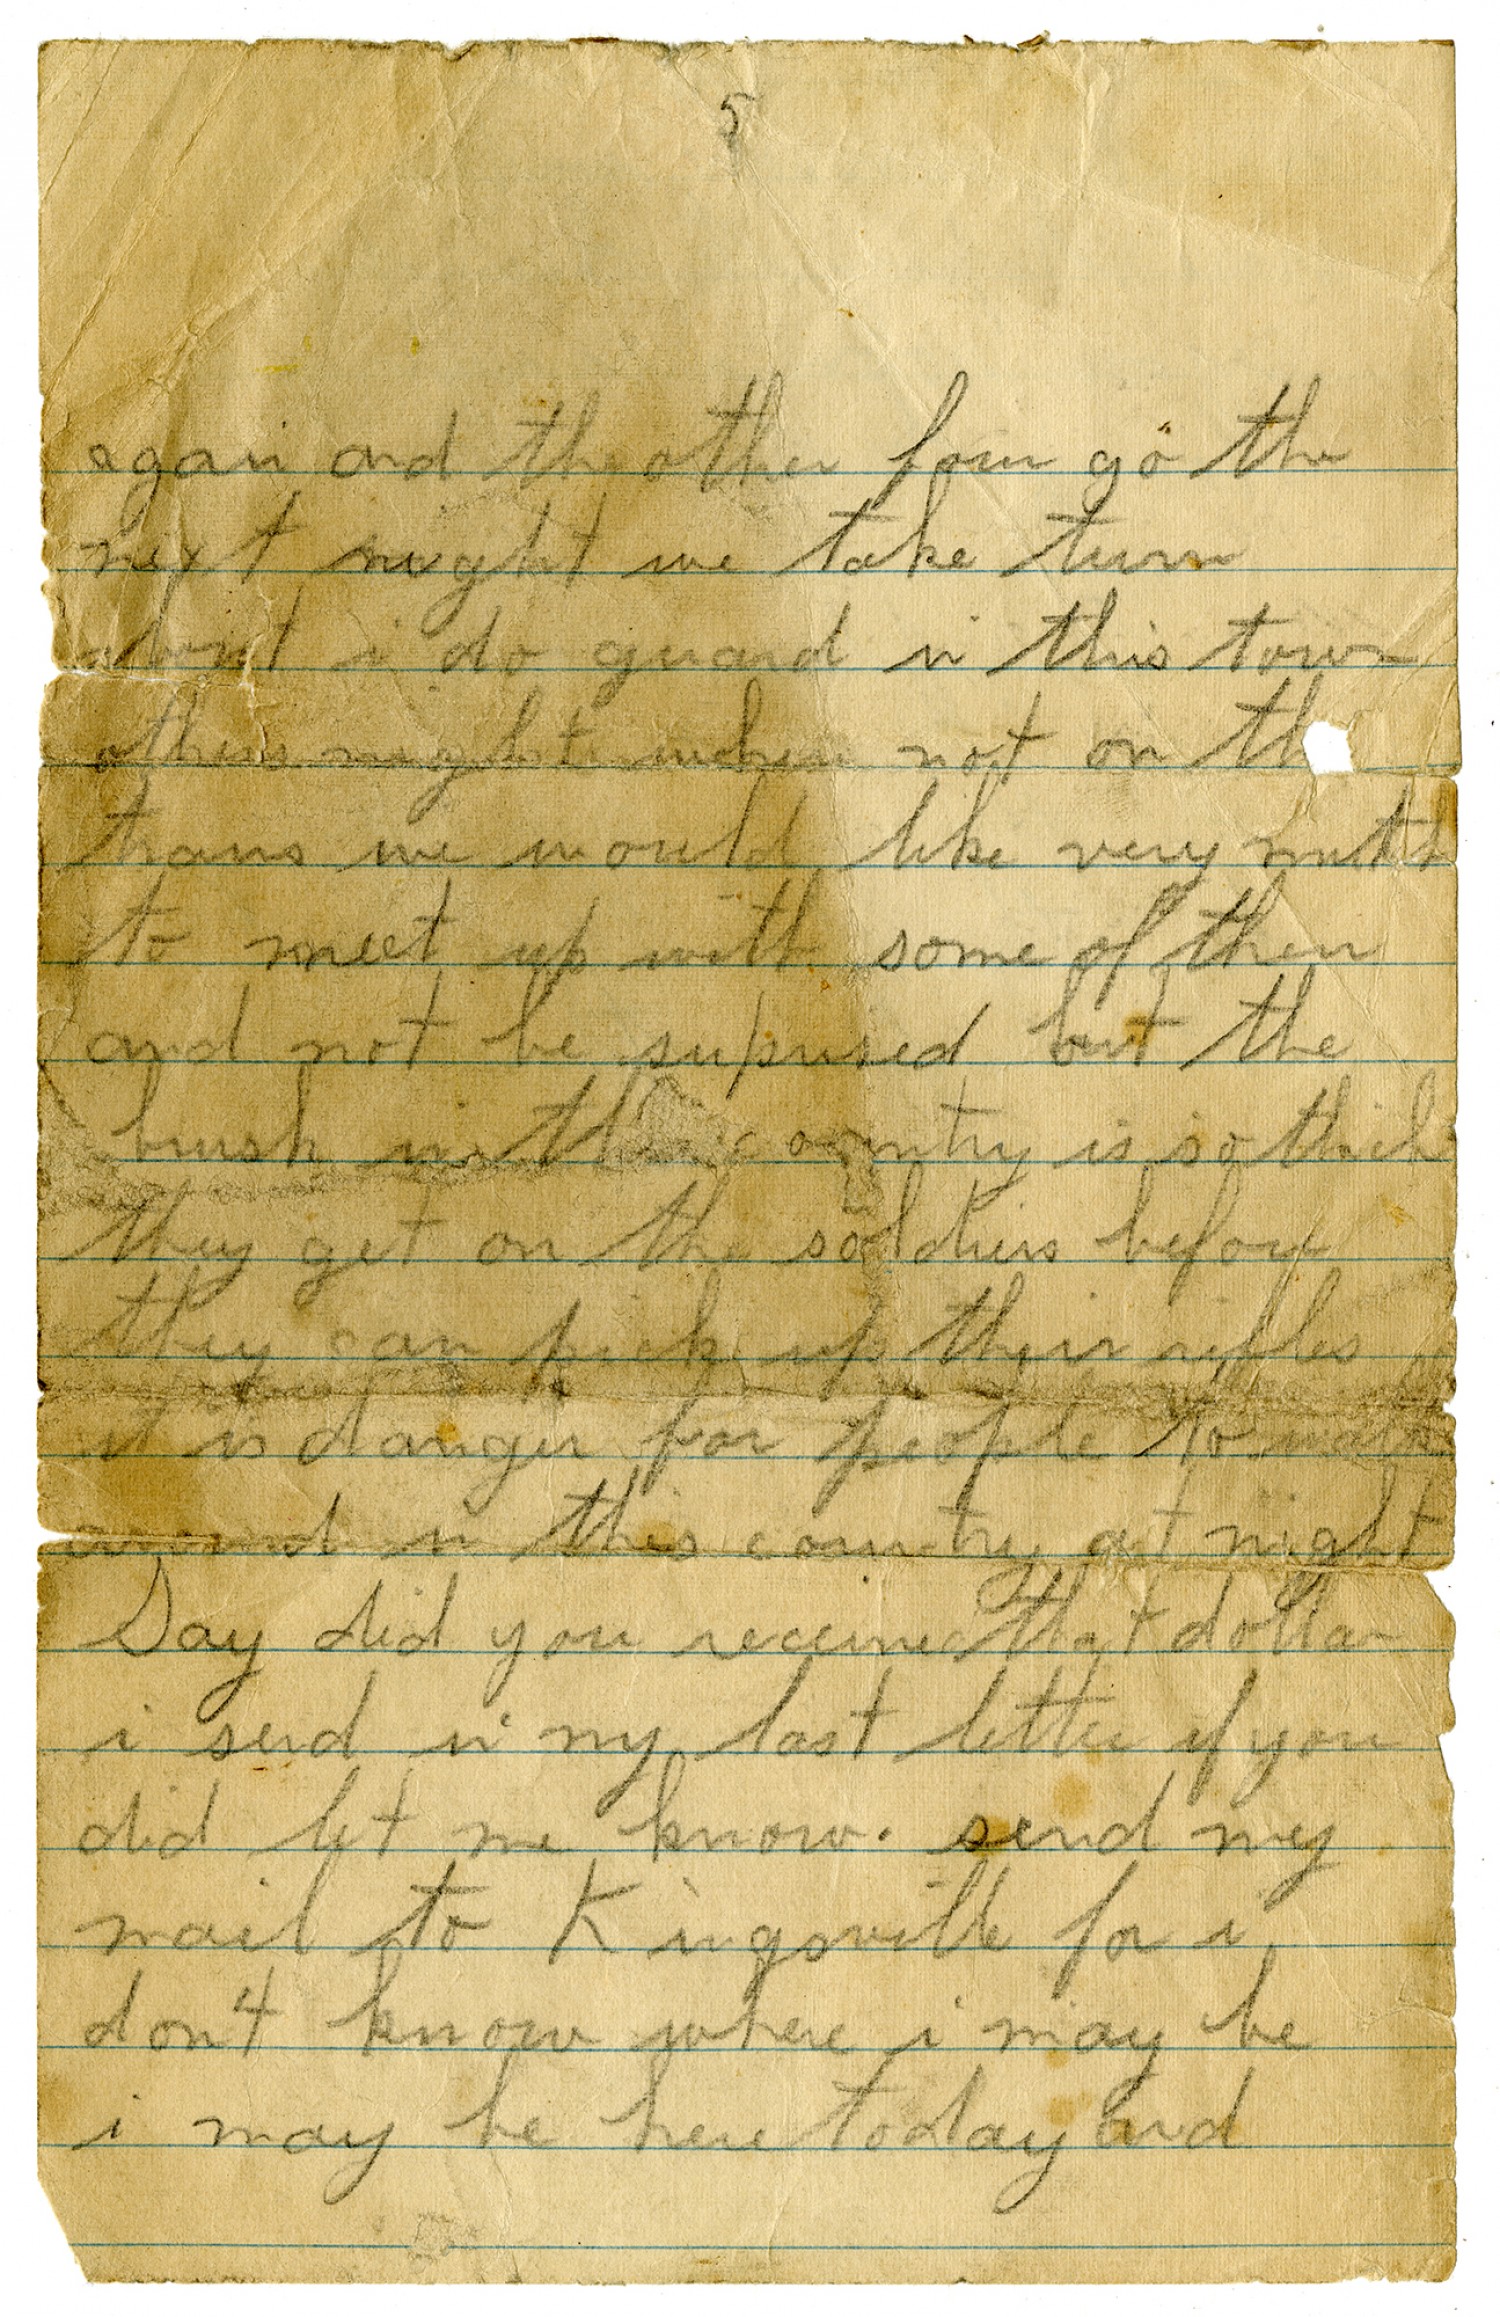 5
again and the other four go the
next night we take turn
about i do guard in this town
others nights when not on the
trains we would like very mutch
to meet up with some of them
and not be suprised but the
brush in this country is so thick
they get on the soldiers before
they can pick up their rifles
it is danger for people to walk
around in this country at night
Say did you receive that dollar
i send in my last letter if you
did let me know. send my
mail to Kingsville for i
don't know where i may be
i may be here today and